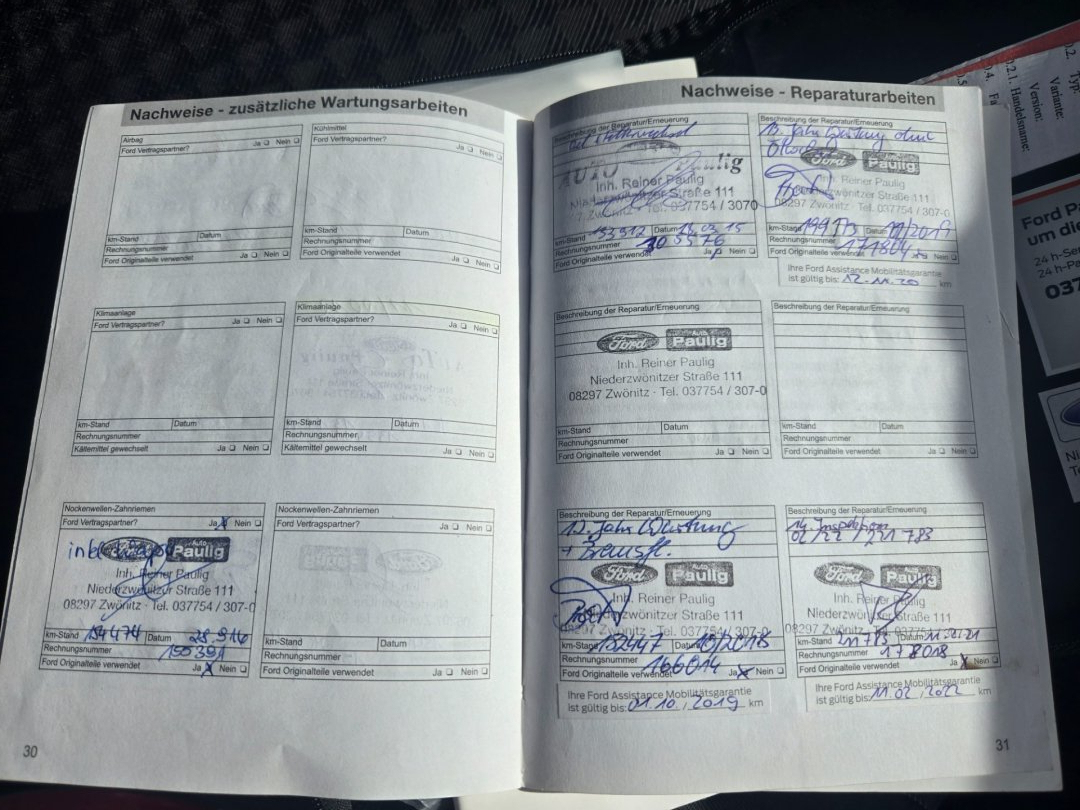 Nachweise - zusätzliche Wartungsarbeiten
Airbag
Ford Vertragspartner? Ja Nein
km-Stand Datum
Rechnungsnummer
Ford Originalteile verwendet Ja Nein
Kühlmittel
Ford Vertragspartner? Ja Nein
km-Stand Datum
Rechnungsnummer
Ford Originalteile verwendet Ja Nein
Klimaanlage
Ford Vertragspartner? Ja Nein
km-Stand Datum
Rechnungsnummer
Kältemittel gewechselt Ja Nein
Klimaanlage
Ford Vertragspartner? Ja Nein
km-Stand Datum
Rechnungsnummer
Kältemittel gewechselt Ja Nein
Nockenwellen-Zahnriemen
Ford Vertragspartner? Ja Nein
Ford Auto Paulig
Inh. Reiner Paulig
Niederzwönitzer Straße 111
08297 Zwönitz · Tel. 037754 / 307-0
km-Stand 154474 Datum 28.9.16
Rechnungsnummer 155391
Ford Originalteile verwendet Ja Nein
Nockenwellen-Zahnriemen
Ford Vertragspartner? Ja Nein
km-Stand Datum
Rechnungsnummer
Ford Originalteile verwendet Ja Nein
30
Nachweise - Reparaturarbeiten
Beschreibung der Reparatur/Erneuerung
AUTO Paulig
Inh. Reiner Paulig
Straße 111
Zwönitz · Tel. 037754 / 3070
km-Stand Datum
Rechnungsnummer
Ford Originalteile verwendet Ja Nein
Beschreibung der Reparatur/Erneuerung
13. Jahr Wartung ohne
Ford Paulig
Inh. Reiner Paulig
Niederzwönitzer Straße 111
08297 Zwönitz · Tel. 037754 / 307-0
km-Stand Datum 11/2019
Rechnungsnummer 171864
Ford Originalteile verwendet Ja Nein
Ihre Ford Assistance Mobilitätsgarantie
ist gültig bis: 12.11.20 km
Beschreibung der Reparatur/Erneuerung
Ford Auto Paulig
Inh. Reiner Paulig
Niederzwönitzer Straße 111
08297 Zwönitz · Tel. 037754 / 307-0
km-Stand Datum
Rechnungsnummer
Ford Originalteile verwendet Ja Nein
Beschreibung der Reparatur/Erneuerung
km-Stand Datum
Rechnungsnummer
Ford Originalteile verwendet Ja Nein
Beschreibung der Reparatur/Erneuerung
12. Jahr Wartung
+ Bremsfl.
Ford Auto Paulig
Inh. Reiner Paulig
Niederzwönitzer Straße 111
08297 Zwönitz · Tel. 037754 / 307-0
km-Stand 182447 Datum 10/2018
Rechnungsnummer 166014
Ford Originalteile verwendet Ja Nein
Ihre Ford Assistance Mobilitätsgarantie
ist gültig bis: 01.10./2019 km
Beschreibung der Reparatur/Erneuerung
14. Inspektion
02/22 / 231 783
Ford Auto Paulig
Inh. Reiner Paulig
Niederzwönitzer Straße 111
08297 Zwönitz · Tel. 037754 / 307-0
km-Stand Datum
Rechnungsnummer 178018
Ford Originalteile verwendet Ja Nein
Ihre Ford Assistance Mobilitätsgarantie
ist gültig bis: 11.02./2022 km
31
Typ:
Variante:
Version:
0.2.1. Handelsname:
um die
24 h-Se
24 h-Pa
037